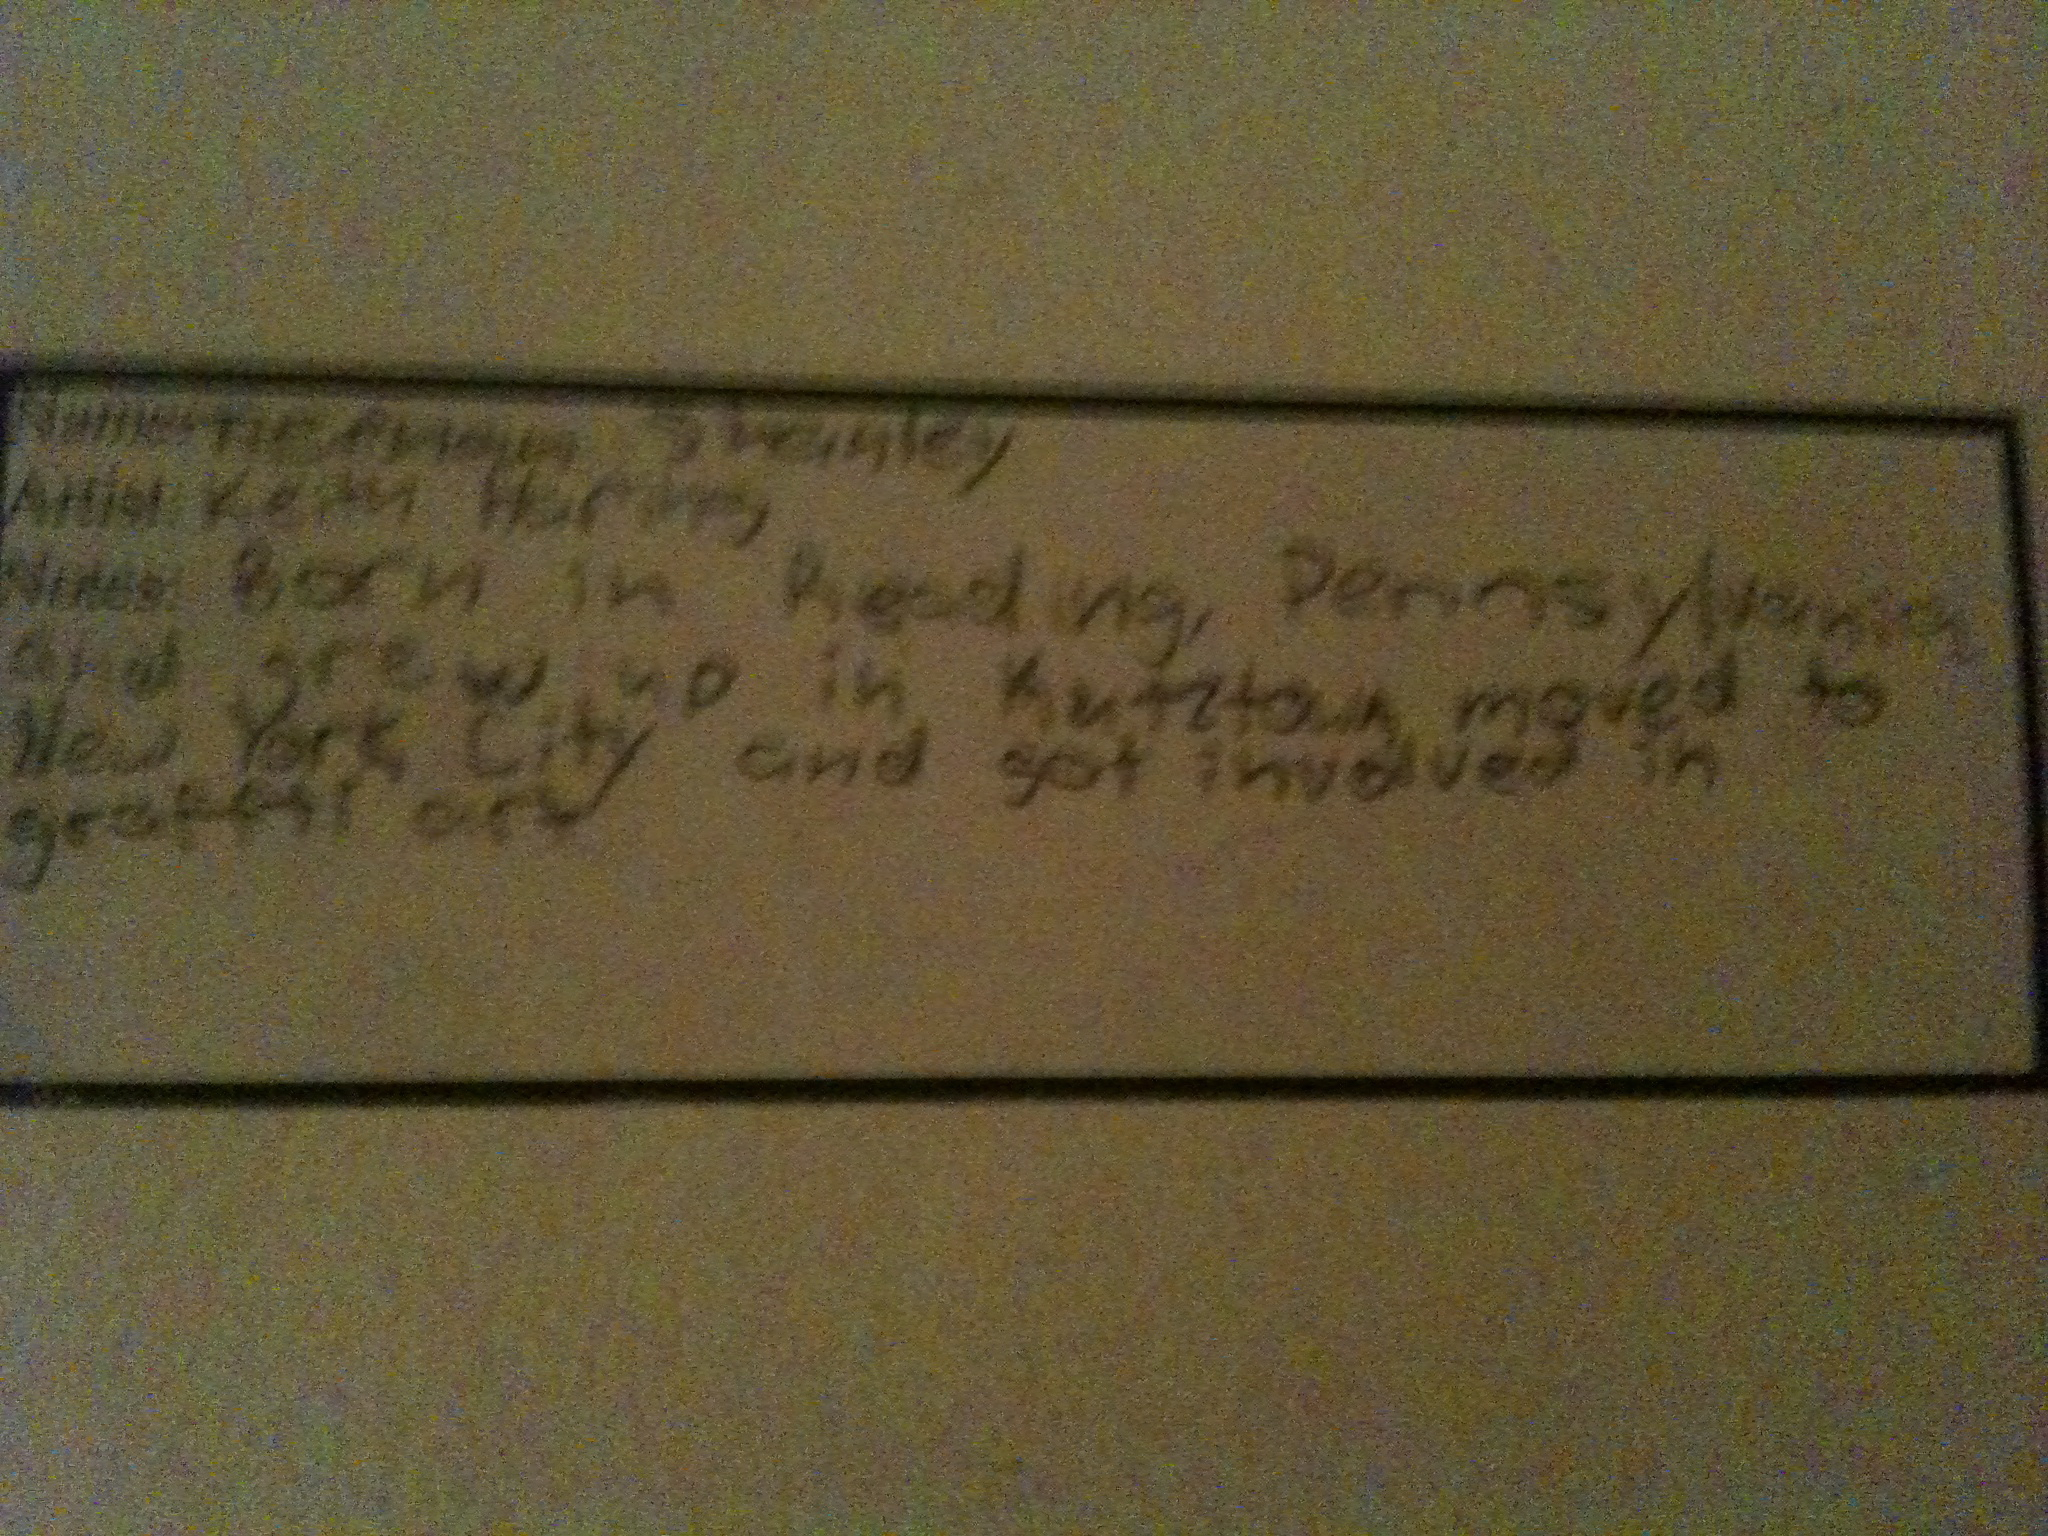 Name: Stanley
Artist: Keith Haring
Notes: Born in Reading, Pennsylvania
and grew up in Kutztown moved to
New York City and got involved in
graffiti art